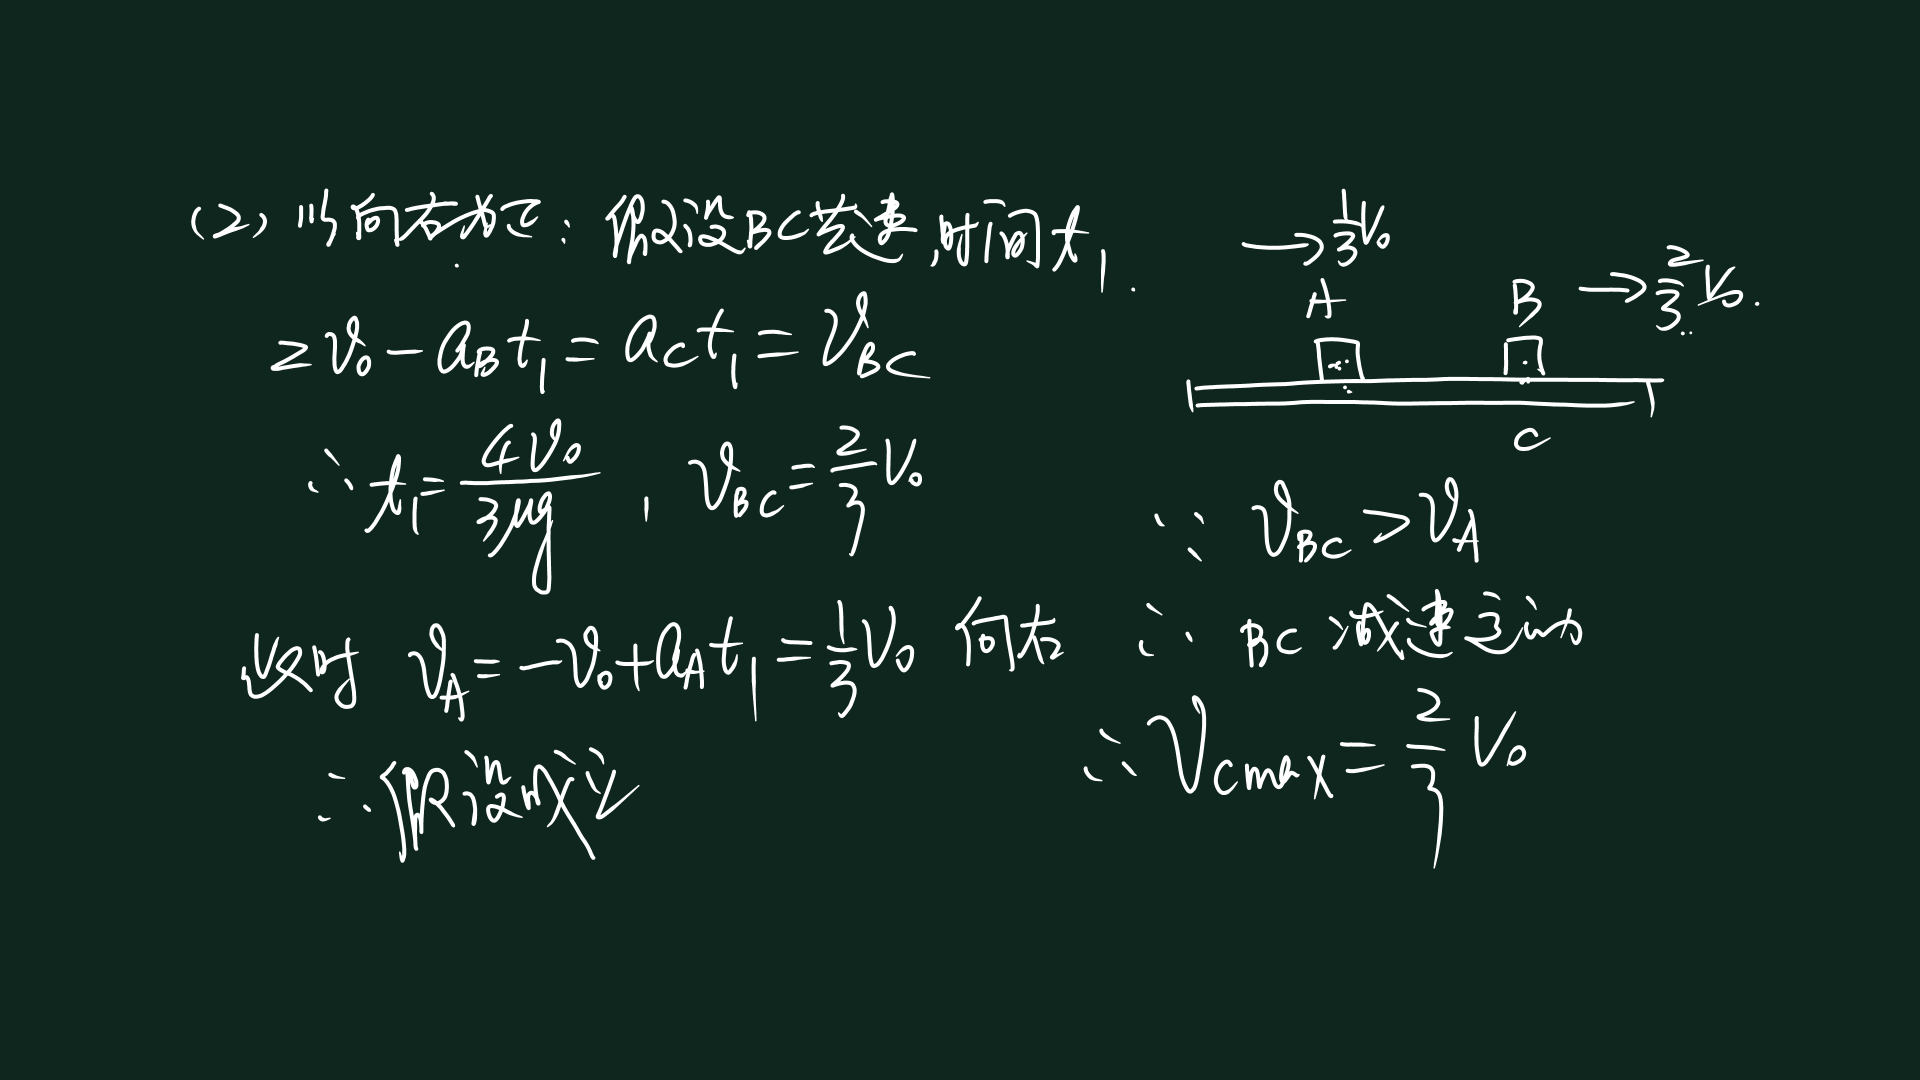 (2) 以向右为正：假设BC共速，时间t₁.
2v₀-a_B t₁=a_C t₁=v_BC
∴ t₁=4v₀/3μg ，v_BC=2/3 v₀
此时 v_A=-v₀+a_A t₁=1/3 v₀ 向右
∴假设成立
→1/3 v₀
A B →2/3 v₀.
C
∵ v_BC>v_A
∴ BC减速运动
∴ v_Cmax=2/3 v₀